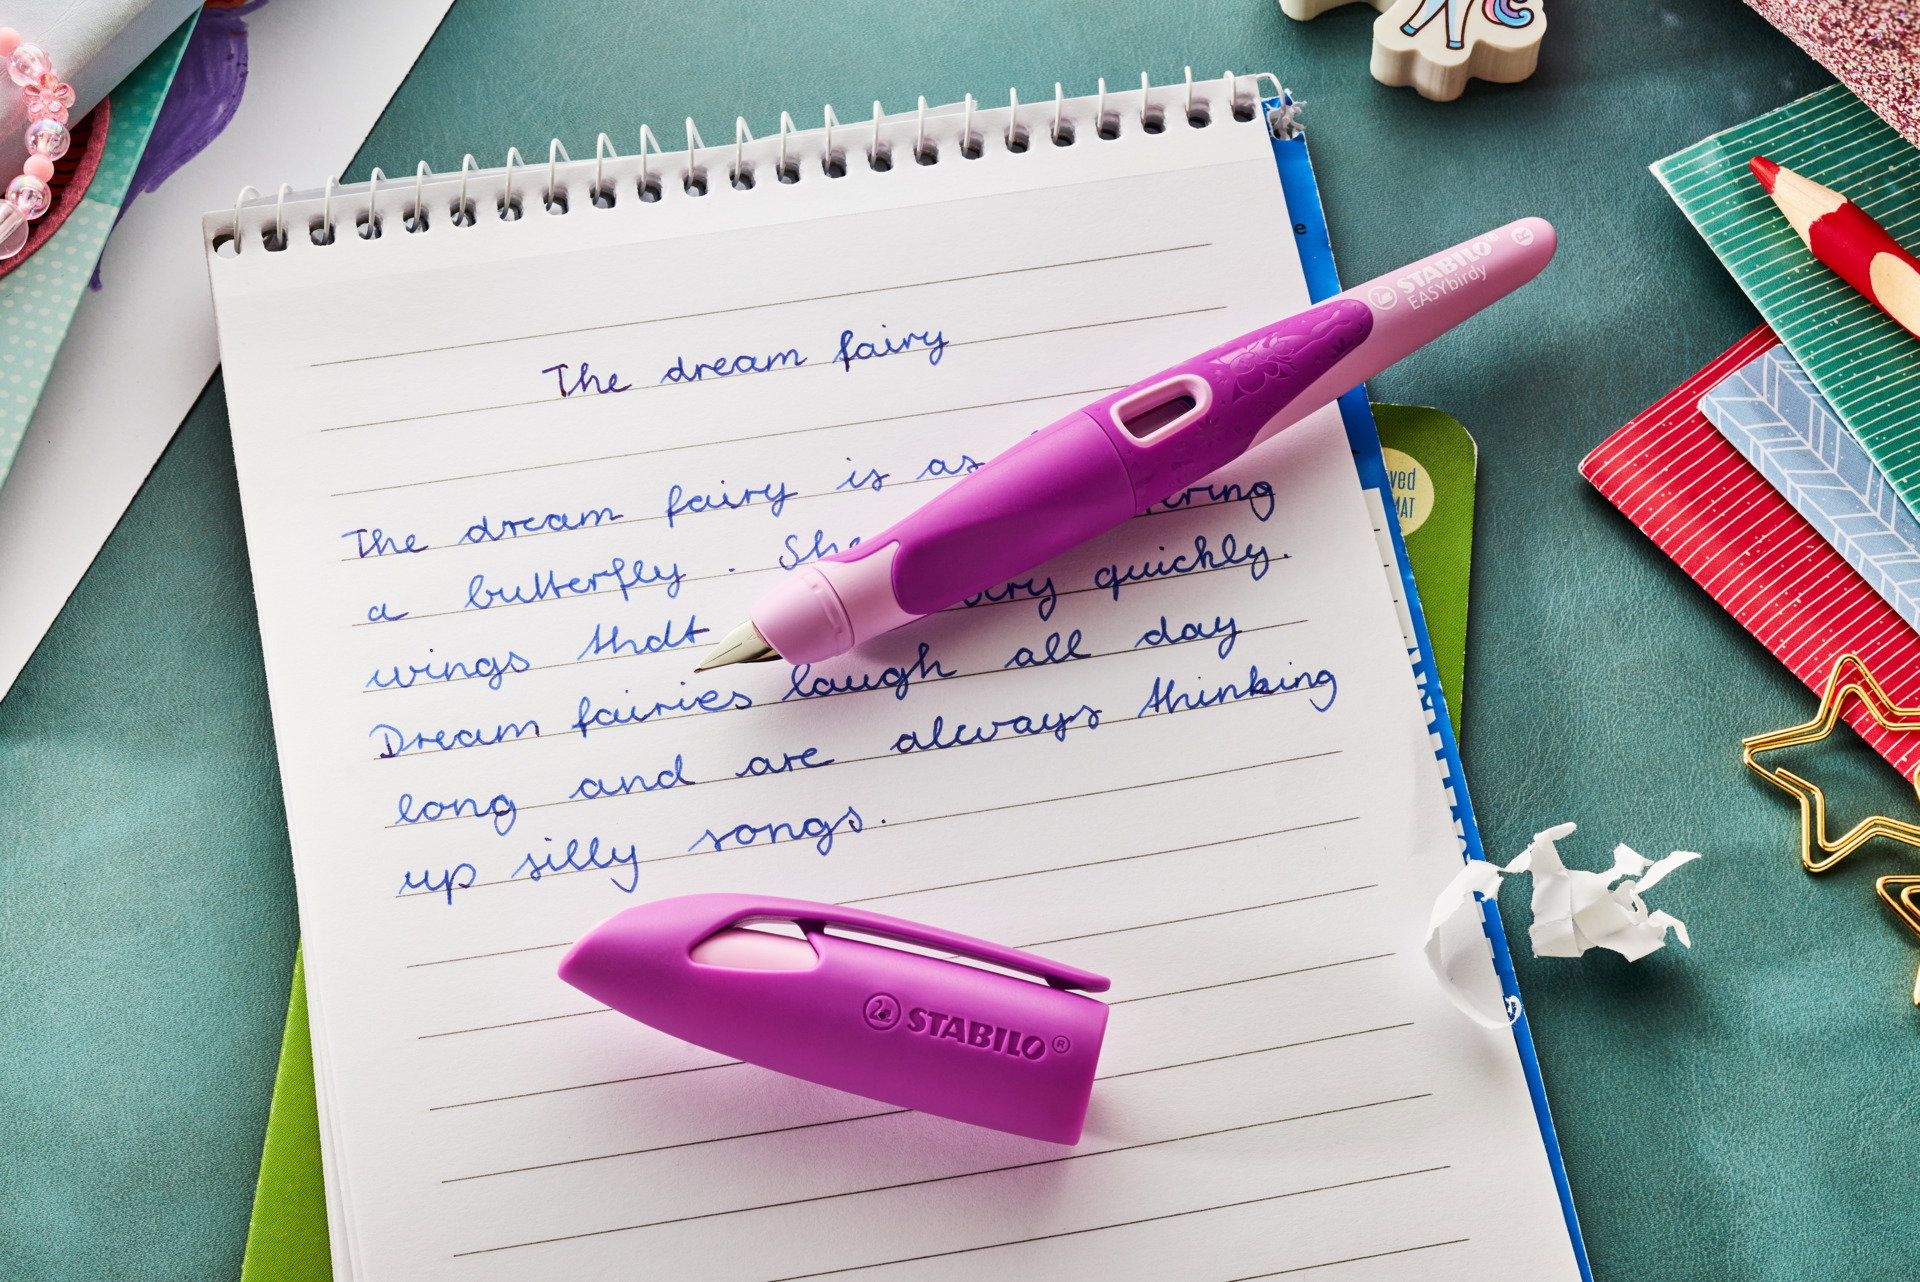 The dream fairy
The dream fairy is as
a butterfly. She
wings that very quickly.
Dream fairies laugh all day
long and are always thinking
up silly songs.
STABILO®
EASYbirdy
R
STABILO®
ved
MAT
e